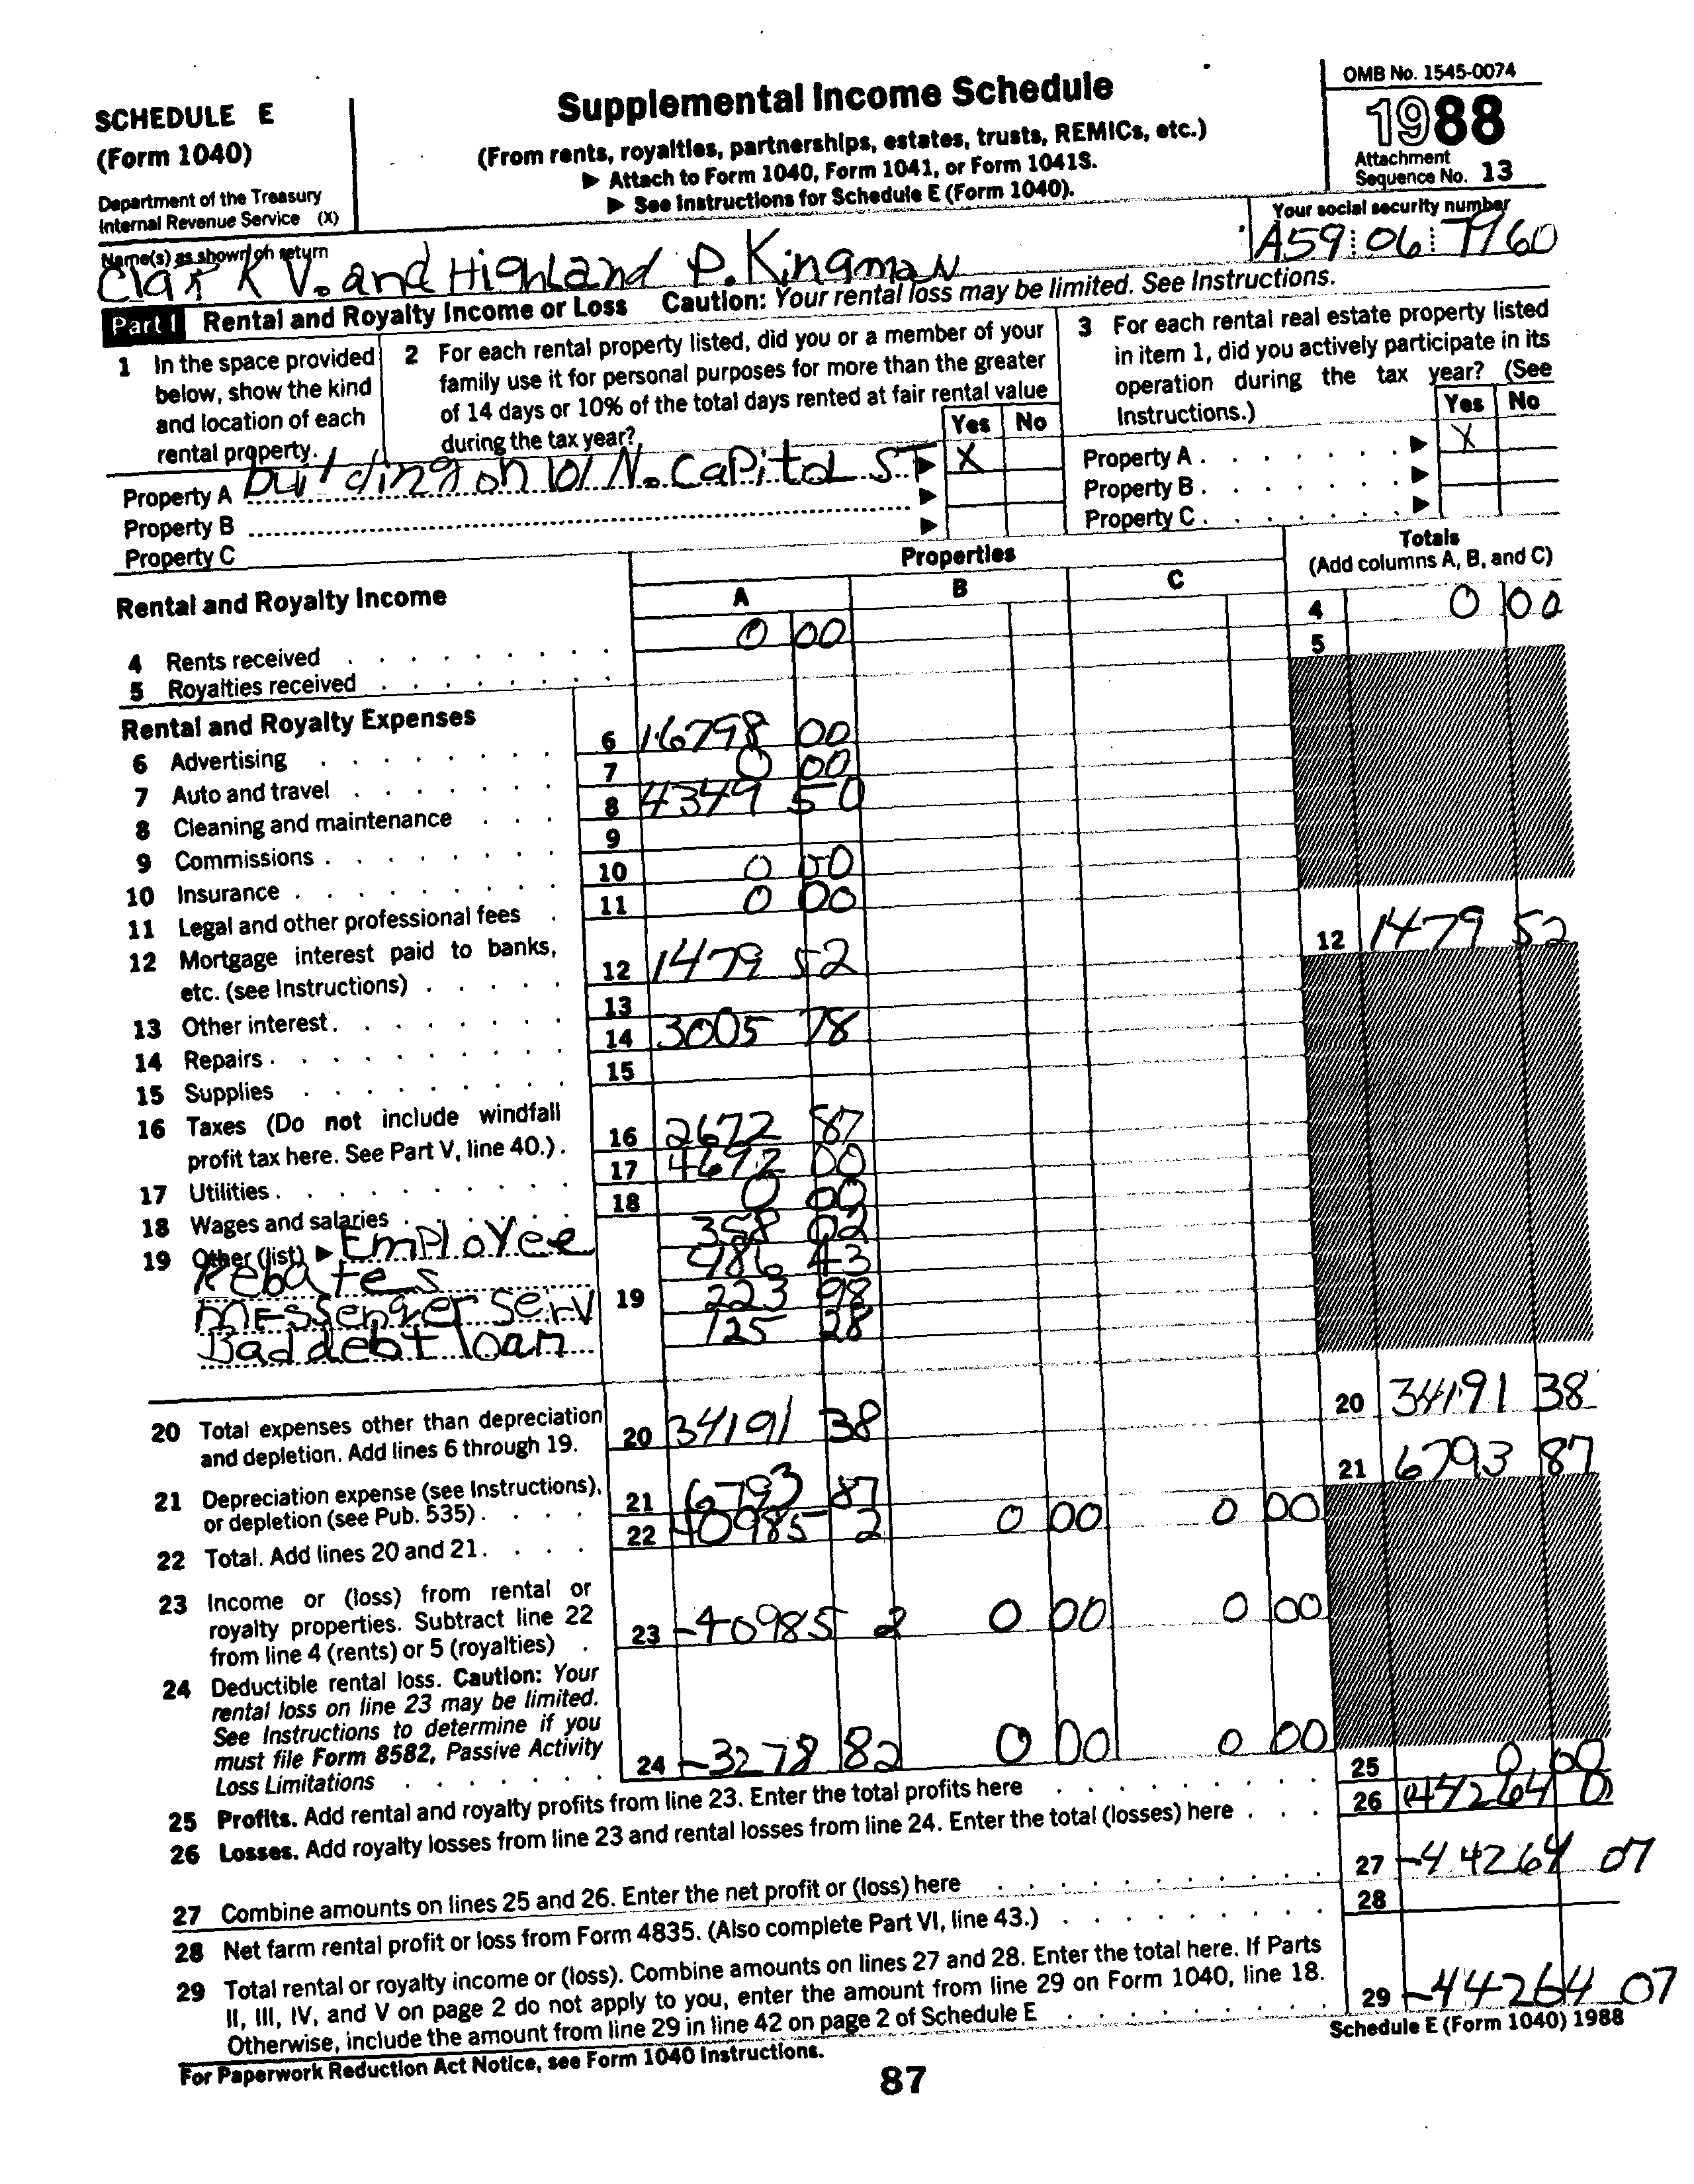 SCHEDULE E
(Form 1040)
Department of the Treasury
Internal Revenue Service (X)
Supplemental Income Schedule
(From rents, royalties, partnerships, estates, trusts, REMICs, etc.)
▶ Attach to Form 1040, Form 1041, or Form 1041S.
▶ See Instructions for Schedule E (Form 1040).
OMB No. 1545-0074
1988
Attachment
Sequence No. 13
Name(s) as shown on return
Clark V. and Highland P. Kingman
Your social security number
A59 06 7960
Part I Rental and Royalty Income or Loss Caution: Your rental loss may be limited. See Instructions.
1 In the space provided
below, show the kind
and location of each
rental property.
2 For each rental property listed, did you or a member of your
family use it for personal purposes for more than the greater
of 14 days or 10% of the total days rented at fair rental value
during the tax year?
Yes No
3 For each rental real estate property listed
in item 1, did you actively participate in its
operation during the tax year? (See
Instructions.)
Yes No
Property A building on 101 N. Capitol ST ▶ X
Property B ▶
Property C ▶
Property A ▶ X
Property B ▶
Property C ▶
Properties
Totals
(Add columns A, B, and C)
Rental and Royalty Income
A B C
4 Rents received 0 00 4 0 00
5 Royalties received 5
Rental and Royalty Expenses
6 Advertising 6 16798 00
7 Auto and travel 7 0 00
8 Cleaning and maintenance 8 4349 50
9 Commissions 9
10 Insurance 10 0 00
11 Legal and other professional fees 11 0 00
12 Mortgage interest paid to banks,
etc. (see Instructions) 12 1479 52 12 1479 52
13 Other interest 13
14 Repairs 14 3005 78
15 Supplies 15
16 Taxes (Do not include windfall
profit tax here. See Part V, line 40.) 16 2672 87
17 Utilities 17 4692 00
18 Wages and salaries 18 0 00
19 Other (list) ▶ Employee 358 02
Rebates 486 43
Messenger Serv 19 223 98
Bad debt loan 125 28
20 Total expenses other than depreciation
and depletion. Add lines 6 through 19. 20 34191 38 20 34191 38
21 Depreciation expense (see Instructions),
or depletion (see Pub. 535) 21 6793 87 21 6793 87
22 Total. Add lines 20 and 21 22 40985 2 0 00 0 00
23 Income or (loss) from rental or
royalty properties. Subtract line 22
from line 4 (rents) or 5 (royalties) 23 -40985 2 0 00 0 00
24 Deductible rental loss. Caution: Your
rental loss on line 23 may be limited.
See Instructions to determine if you
must file Form 8582, Passive Activity
Loss Limitations 24 -3278 82 0 00 0 00
25 Profits. Add rental and royalty profits from line 23. Enter the total profits here 25 0 00
26 Losses. Add royalty losses from line 23 and rental losses from line 24. Enter the total (losses) here 26
27 Combine amounts on lines 25 and 26. Enter the net profit or (loss) here 27 -44264 07
28 Net farm rental profit or loss from Form 4835. (Also complete Part VI, line 43.) 28
29 Total rental or royalty income or (loss). Combine amounts on lines 27 and 28. Enter the total here. If Parts
II, III, IV, and V on page 2 do not apply to you, enter the amount from line 29 on Form 1040, line 18.
Otherwise, include the amount from line 29 in line 42 on page 2 of Schedule E 29 -44264 07
For Paperwork Reduction Act Notice, see Form 1040 Instructions.
Schedule E (Form 1040) 1988
87